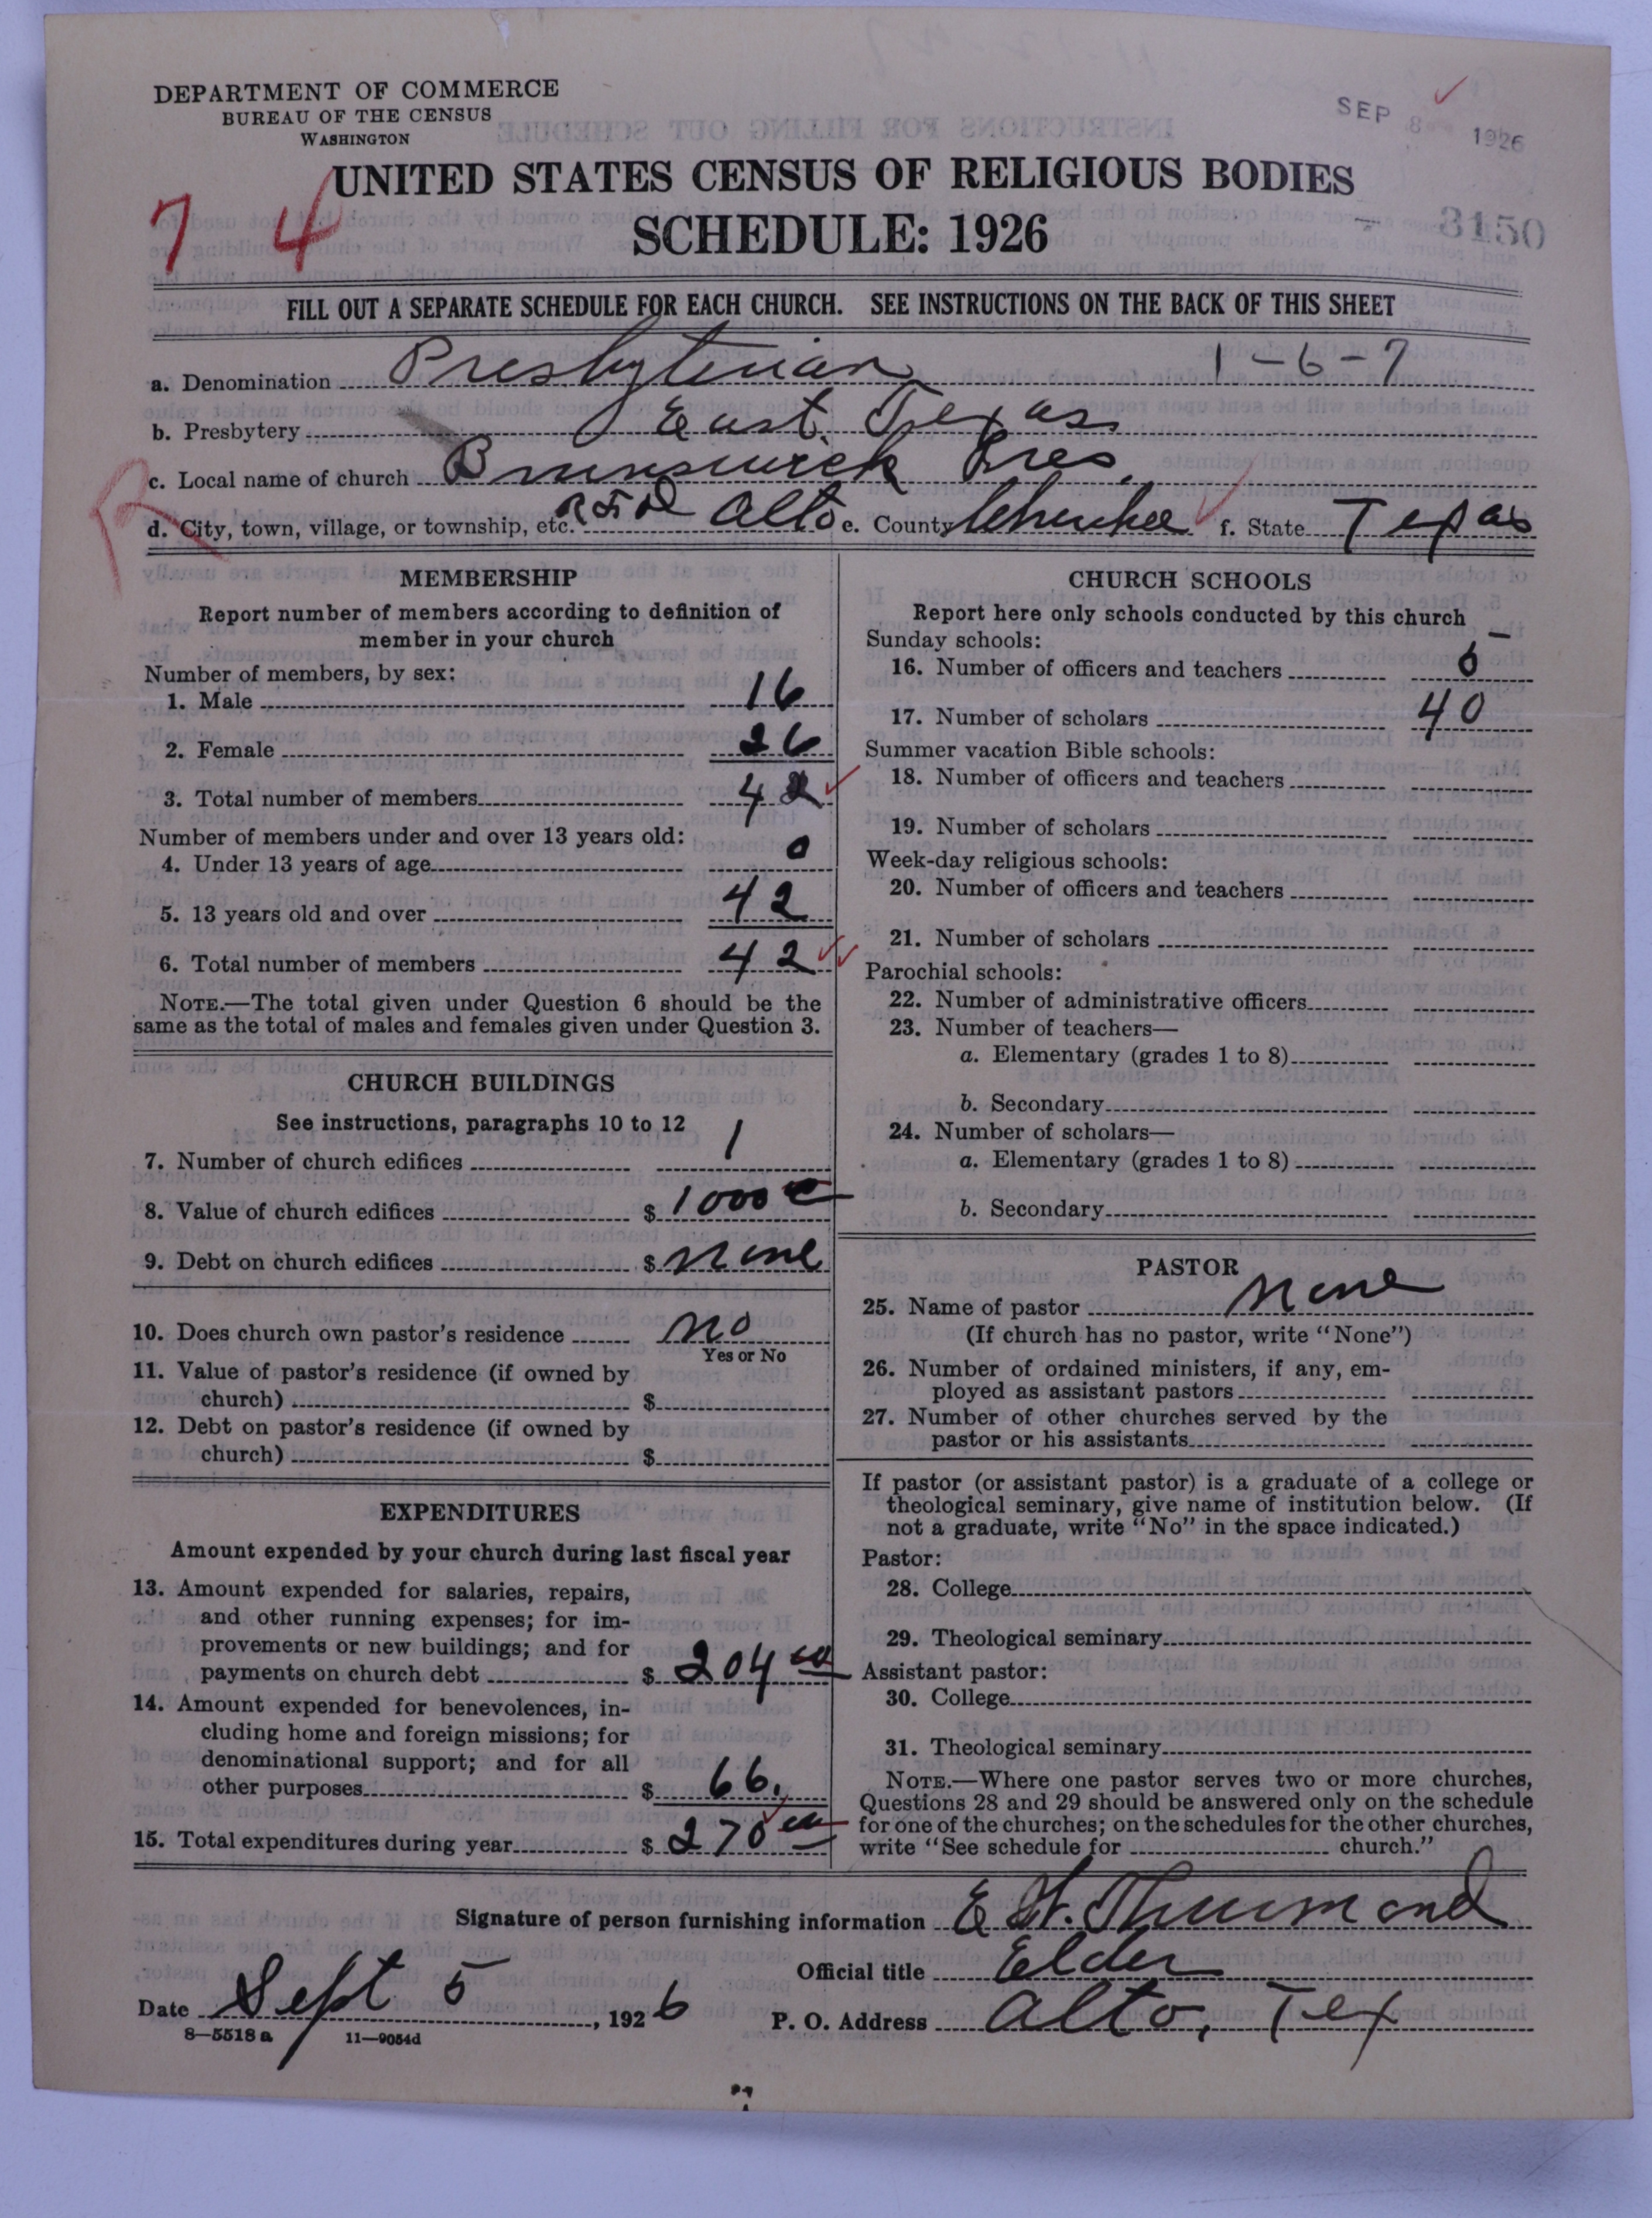 DEPARTMENT OF COMMERCE
BUREAU OF THE CENSUS
WASHINGTON
SEP 8 1926
UNITED STATES CENSUS OF RELIGIOUS BODIES
7 4
SCHEDULE: 1926
3150
FILL OUT A SEPARATE SCHEDULE FOR EACH CHURCH. SEE INSTRUCTIONS ON THE BACK OF THIS SHEET
a. Denomination Presbyterian 1-6-7
b. Presbytery East Texas
c. Local name of church Brunswick Pres.
R
d. City, town, village, or township, etc. RFD Alto e. County Cherokee f. State Texas
MEMBERSHIP
Report number of members according to definition of
member in your church
Number of members, by sex:
1. Male 16
2. Female 26
3. Total number of members 42
Number of members under and over 13 years old:
4. Under 13 years of age 0
5. 13 years old and over 42
6. Total number of members 42
NOTE.—The total given under Question 6 should be the
same as the total of males and females given under Question 3.
CHURCH BUILDINGS
See instructions, paragraphs 10 to 12
7. Number of church edifices 1
8. Value of church edifices $ 1000
9. Debt on church edifices $ None
10. Does church own pastor's residence No
Yes or No
11. Value of pastor's residence (if owned by
church) $
12. Debt on pastor's residence (if owned by
church) $
EXPENDITURES
Amount expended by your church during last fiscal year
13. Amount expended for salaries, repairs,
and other running expenses; for im-
provements or new buildings; and for
payments on church debt $ 204 00
14. Amount expended for benevolences, in-
cluding home and foreign missions; for
denominational support; and for all
other purposes $ 66.
15. Total expenditures during year $ 270 00
CHURCH SCHOOLS
Report here only schools conducted by this church
Sunday schools:
16. Number of officers and teachers 6
17. Number of scholars 40
Summer vacation Bible schools:
18. Number of officers and teachers
19. Number of scholars
Week-day religious schools:
20. Number of officers and teachers
21. Number of scholars
Parochial schools:
22. Number of administrative officers
23. Number of teachers—
a. Elementary (grades 1 to 8)
b. Secondary
24. Number of scholars—
a. Elementary (grades 1 to 8)
b. Secondary
PASTOR
25. Name of pastor None
(If church has no pastor, write "None")
26. Number of ordained ministers, if any, em-
ployed as assistant pastors
27. Number of other churches served by the
pastor or his assistants
If pastor (or assistant pastor) is a graduate of a college or
theological seminary, give name of institution below. (If
not a graduate, write "No" in the space indicated.)
Pastor:
28. College
29. Theological seminary
Assistant pastor:
30. College
31. Theological seminary
NOTE.—Where one pastor serves two or more churches,
Questions 28 and 29 should be answered only on the schedule
for one of the churches; on the schedules for the other churches,
write "See schedule for church."
Signature of person furnishing information E W. Thurmond
Official title Elder
Date Sept 5, 1926
P. O. Address Alto, Tex
8—5518 a 11—9054d